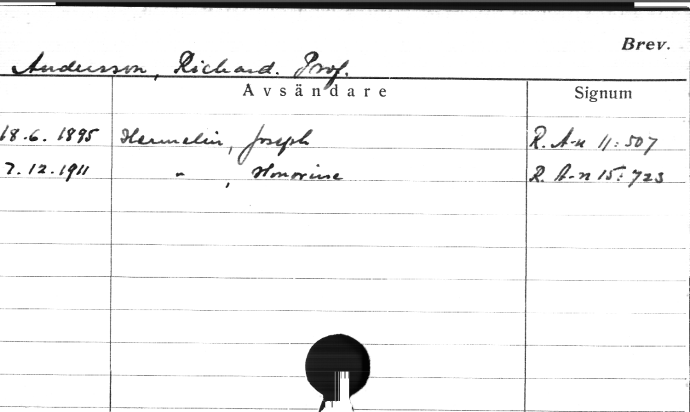 Brev.
Andersson, Richard. Prof.
Avsändare Signum
18.6.1895 Hermelin, Joseph R. A-n 11:507
7.12.1911 " , Honorine R. A-n 15:723